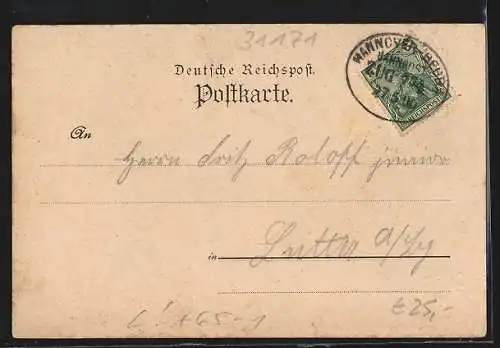 31171
HANNOVER
ZUG
REICHSPOST
Deutsche Reichspost.
Postkarte.
An
Herrn Fritz Roloff junior
in Lutter a/Bg
€25,-